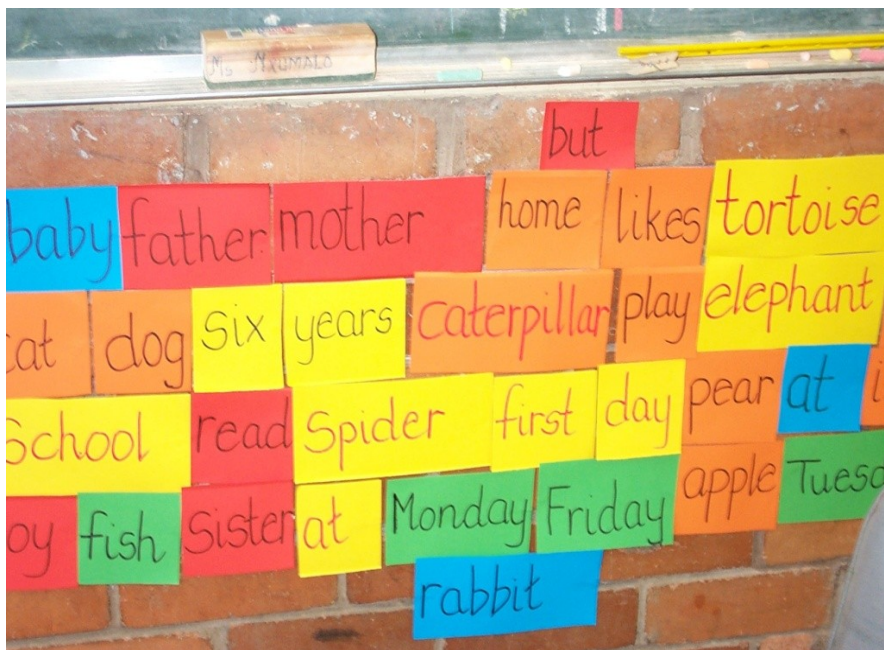 Ms NXUMALO
but
baby father mother home likes tortoise
cat dog six years caterpillar play elephant
School read Spider first day pear at
fish Sister at Monday Friday apple Tuesd
rabbit